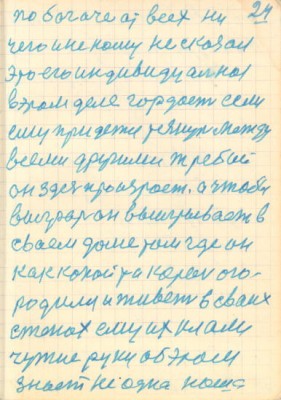 24
по богаче от всех ни
чего и не кому не сказал
это его индивидуалная
в этом деле гордост если
ему придется тянут между
всеми другими жребой
он здес проиграет. а чтобы
выиграт он выигрывает в
своем доме том где он
как какой та корол ого-
родили и живет в своих
стенах ему их
чужие руки об этом
знает ни одна наша